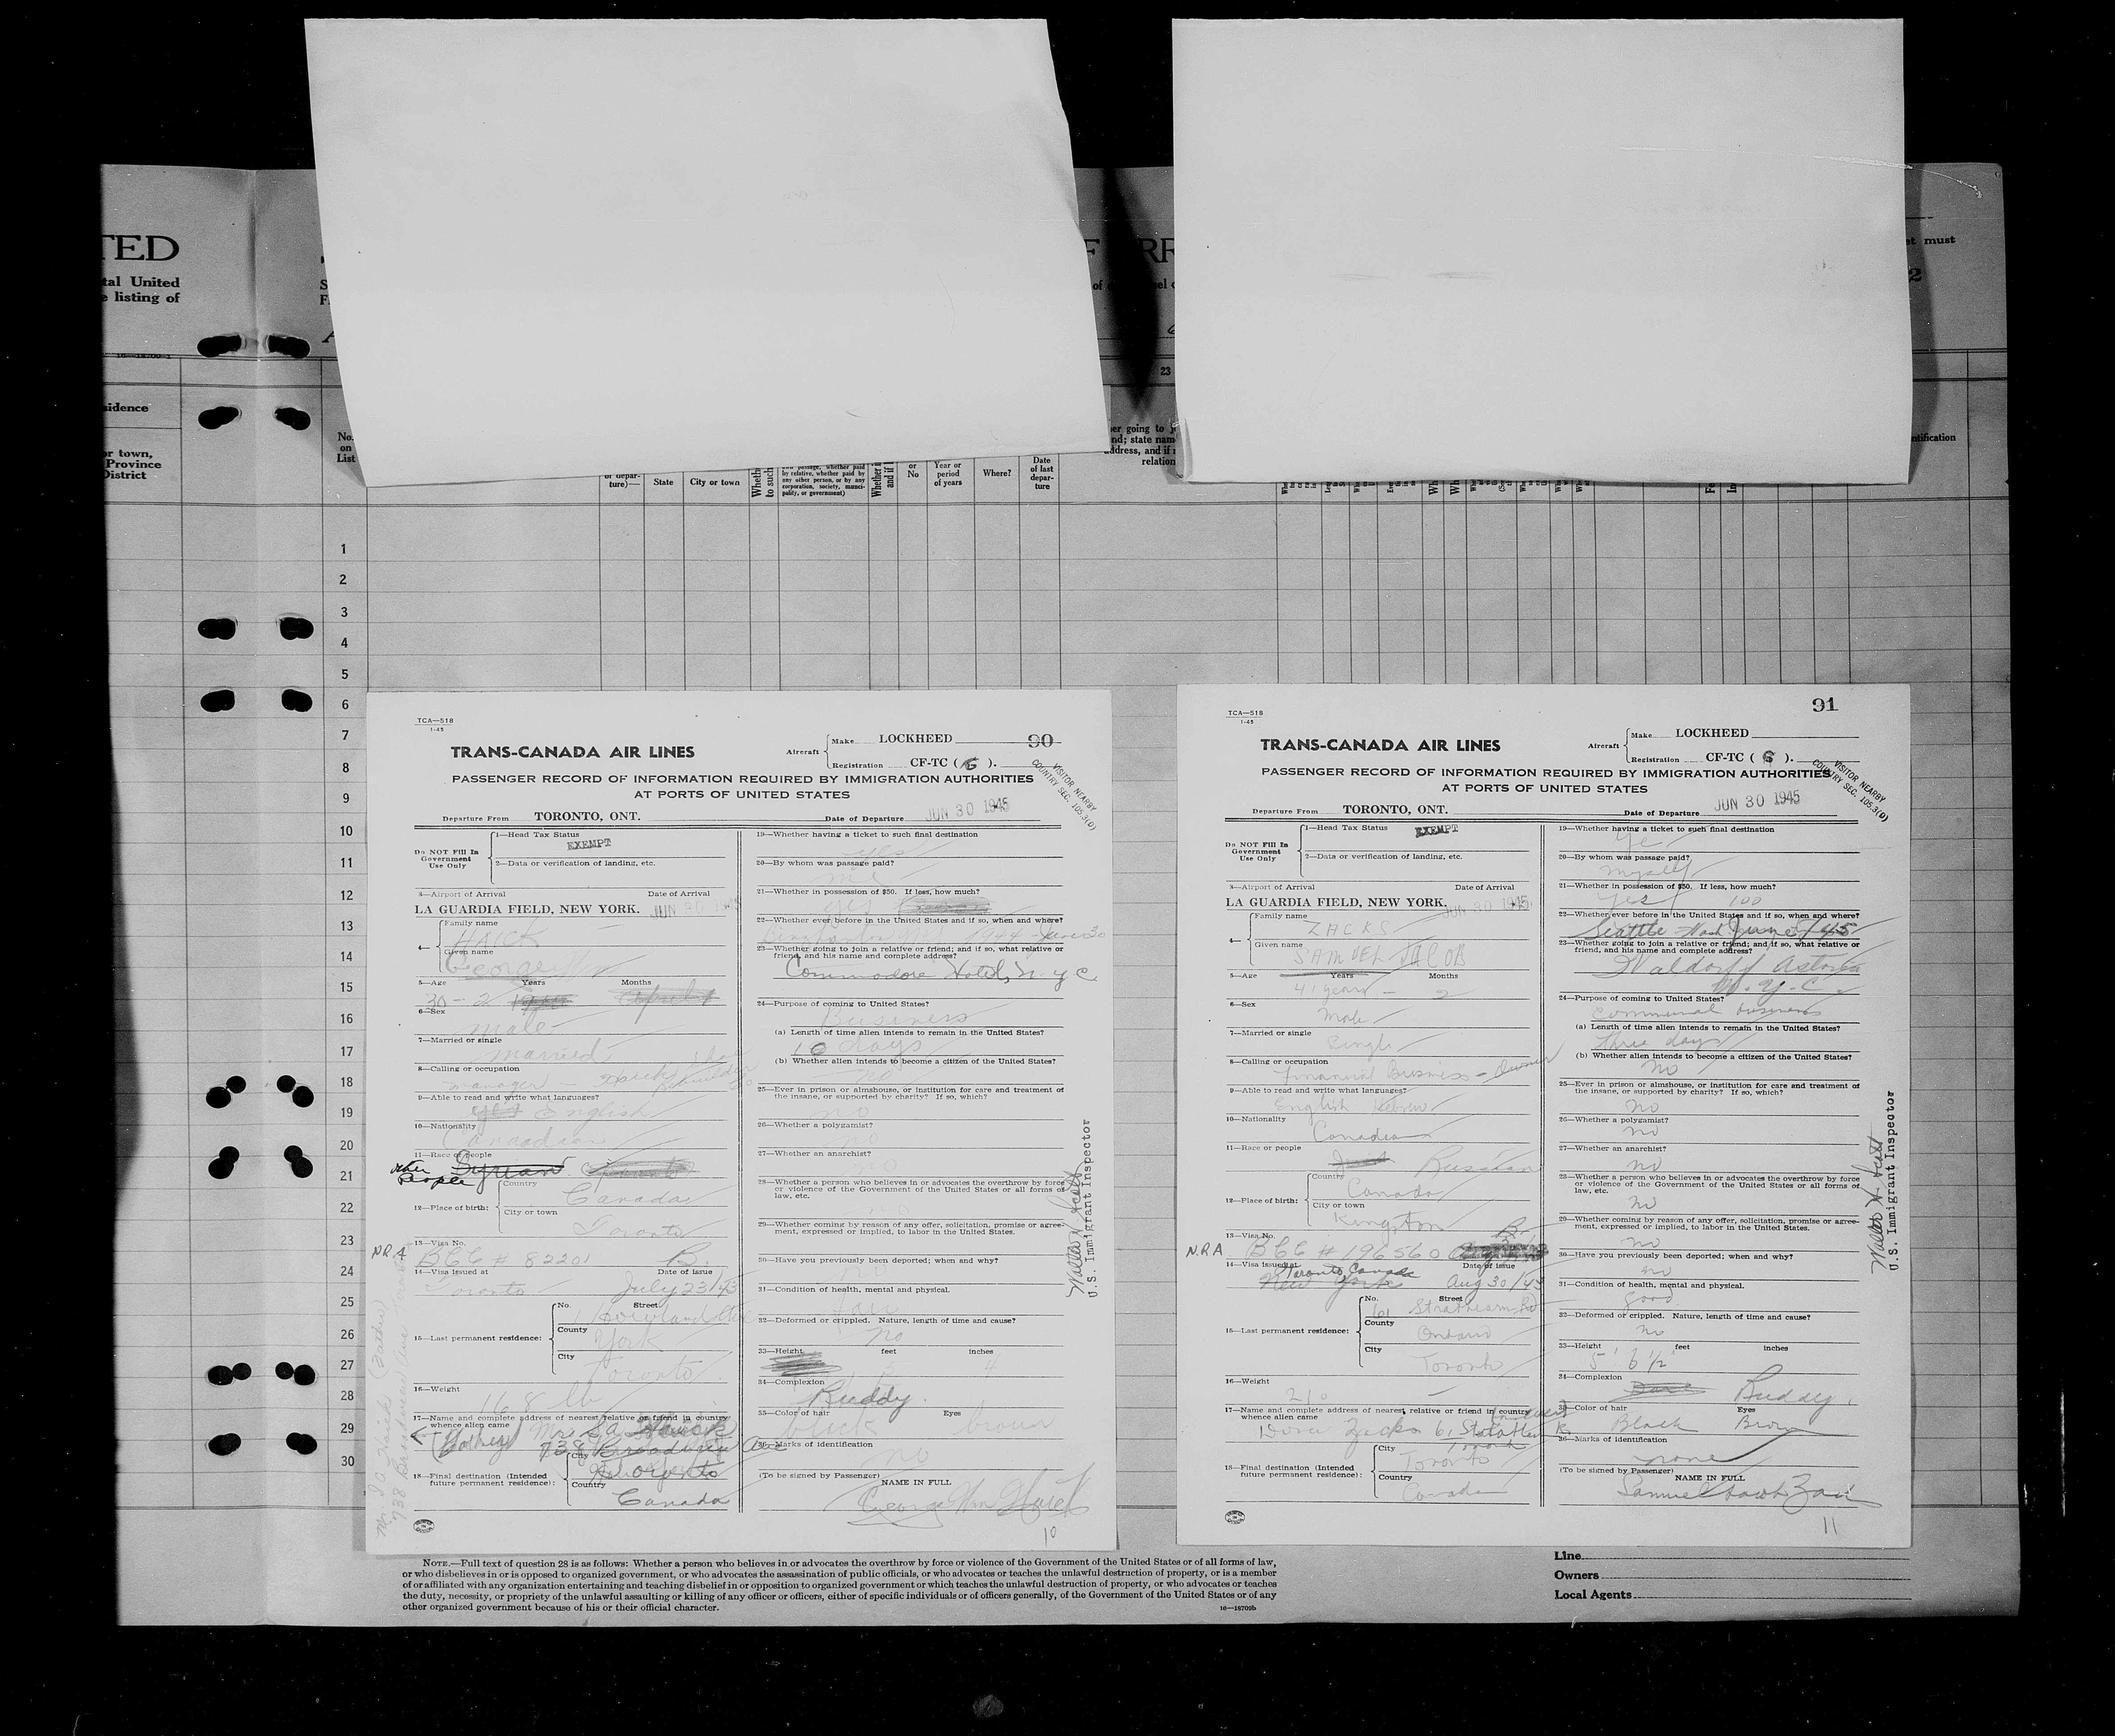 TED
tal United
e listing of
16—18700-1
sidence
or town,
Province
District
No.
on
List
et must
23
ntification
or depar-
ture)—
State
City or town
by relative, whether paid
by any other person, or by any
corporation, society, munici-
pality, or government)
or
No
Year or
period
of years
Where?
Date
of last
depar-
ture
er going to
nd; state nam
address, and if
relation
1
2
3
4
5
6
7
8
9
10
11
12
13
14
15
16
17
18
19
20
21
22
23
24
25
26
27
28
29
30
TCA—518
1-45
TRANS-CANADA AIR LINES
Aircraft
Make LOCKHEED
90
Registration CF-TC ( G ).
PASSENGER RECORD OF INFORMATION REQUIRED BY IMMIGRATION AUTHORITIES
AT PORTS OF UNITED STATES
VISITOR NEARBY
COUNTRY SEC. 105.3(0)
Departure From TORONTO, ONT. Date of Departure JUN 30 1945
Do NOT Fill In
Government
Use Only
1—Head Tax Status
EXEMPT
2—Data or verification of landing, etc.
3—Airport of Arrival Date of Arrival
LA GUARDIA FIELD, NEW YORK. JUN 30 1945
4—
Family name
HAICK
Given name
George
5—Age Years Months
30 – 2
6—Sex
male
7—Married or single
married
8—Calling or occupation
manager
9—Able to read and write what languages?
yes English
10—Nationality
Canadian
11—Race or people
other People Syrian
12—Place of birth:
Country
Canada
City or town
Toronto
13—Visa No.
N.R.A BCC # 82201 B.
14—Visa issued at Date of issue
Toronto July 23/43
15—Last permanent residence:
No. Street
County
York
City
Toronto
16—Weight
168 lb
17—Name and complete address of nearest relative or friend in country
whence alien came
738 Broadview Ave
18—Final destination (Intended
future permanent residence):
City
Toronto
Country
Canada
738 Broadview Ave
19—Whether having a ticket to such final destination
yes
20—By whom was passage paid?
me
21—Whether in possession of $50. If less, how much?
yes
22—Whether ever before in the United States and if so, when and where?
1944 June 30
23—Whether going to join a relative or friend; and if so, what relative or
friend, and his name and complete address?
Commodore Hotel, N.Y.C.
24—Purpose of coming to United States?
Business
(a) Length of time alien intends to remain in the United States?
10 days
(b) Whether alien intends to become a citizen of the United States?
no
25—Ever in prison or almshouse, or institution for care and treatment of
the insane, or supported by charity? If so, which?
no
26—Whether a polygamist?
no
27—Whether an anarchist?
no
28—Whether a person who believes in or advocates the overthrow by force
or violence of the Government of the United States or all forms of
law, etc.
no
29—Whether coming by reason of any offer, solicitation, promise or agree-
ment, expressed or implied, to labor in the United States.
30—Have you previously been deported; when and why?
no
31—Condition of health, mental and physical.
fair
32—Deformed or crippled. Nature, length of time and cause?
no
33—Height feet inches
4
34—Complexion
Ruddy
35—Color of hair Eyes
black brown
36—Marks of identification
no
(To be signed by Passenger)
NAME IN FULL
George Wm Haick
10
Walter H. Scott
U.S. Immigrant Inspector
91
TCA—518
1-45
TRANS-CANADA AIR LINES
Aircraft
Make LOCKHEED
Registration CF-TC ( G ).
PASSENGER RECORD OF INFORMATION REQUIRED BY IMMIGRATION AUTHORITIES
AT PORTS OF UNITED STATES
VISITOR NEARBY
COUNTRY SEC. 105.3(0)
Departure From TORONTO, ONT. Date of Departure JUN 30 1945
Do NOT Fill In
Government
Use Only
1—Head Tax Status
EXEMPT
2—Data or verification of landing, etc.
3—Airport of Arrival Date of Arrival
LA GUARDIA FIELD, NEW YORK. JUN 30 1945
4—
Family name
ZACKS
Given name
SAMUEL JACOB
5—Age Years Months
41 years – 2
6—Sex
Male
7—Married or single
Single
8—Calling or occupation
Financial Business – Owner
9—Able to read and write what languages?
English Hebrew
10—Nationality
Canadian
11—Race or people
Russian
12—Place of birth:
Country
Canada
City or town
Kingston
13—Visa No. B.
N.R.A BCC # 196560
14—Visa issued at Date of issue
Toronto Canada
New York Aug 30/43
15—Last permanent residence:
No. Street
61 Strathearn Rd
County
Ontario
City
Toronto
16—Weight
210
17—Name and complete address of nearest relative or friend in country
whence alien came
Dora Zacks 61
18—Final destination (Intended
future permanent residence):
City
Toronto
Country
Canada
19—Whether having a ticket to such final destination
Yes
20—By whom was passage paid?
myself
21—Whether in possession of $50. If less, how much?
Yes 100
22—Whether ever before in the United States and if so, when and where?
Seattle Wash June 7/45
23—Whether going to join a relative or friend; and if so, what relative or
friend, and his name and complete address?
Waldorf Astoria
N.Y.C.
24—Purpose of coming to United States?
communal business
(a) Length of time alien intends to remain in the United States?
Three days
(b) Whether alien intends to become a citizen of the United States?
No
25—Ever in prison or almshouse, or institution for care and treatment of
the insane, or supported by charity? If so, which?
no
26—Whether a polygamist?
no
27—Whether an anarchist?
no
28—Whether a person who believes in or advocates the overthrow by force
or violence of the Government of the United States or all forms of
law, etc.
No
29—Whether coming by reason of any offer, solicitation, promise or agree-
ment, expressed or implied, to labor in the United States.
no
30—Have you previously been deported; when and why?
no
31—Condition of health, mental and physical.
good
32—Deformed or crippled. Nature, length of time and cause?
no
33—Height feet inches
5' 6 1/2
34—Complexion
Dark Ruddy.
35—Color of hair Eyes
Black Brown
36—Marks of identification
none
(To be signed by Passenger)
NAME IN FULL
Samuel Jacob Zacks
11
Walter H. Scott
U.S. Immigrant Inspector
NOTE.—Full text of question 28 is as follows: Whether a person who believes in or advocates the overthrow by force or violence of the Government of the United States or of all forms of law,
or who disbelieves in or is opposed to organized government, or who advocates the assassination of public officials, or who advocates or teaches the unlawful destruction of property, or is a member
of or affiliated with any organization entertaining and teaching disbelief in or opposition to organized government or which teaches the unlawful destruction of property, or who advocates or teaches
the duty, necessity, or propriety of the unlawful assaulting or killing of any officer or officers, either of specific individuals or of officers generally, of the Government of the United States or of any
other organized government because of his or their official character.
16—18700b
Line
Owners
Local Agents